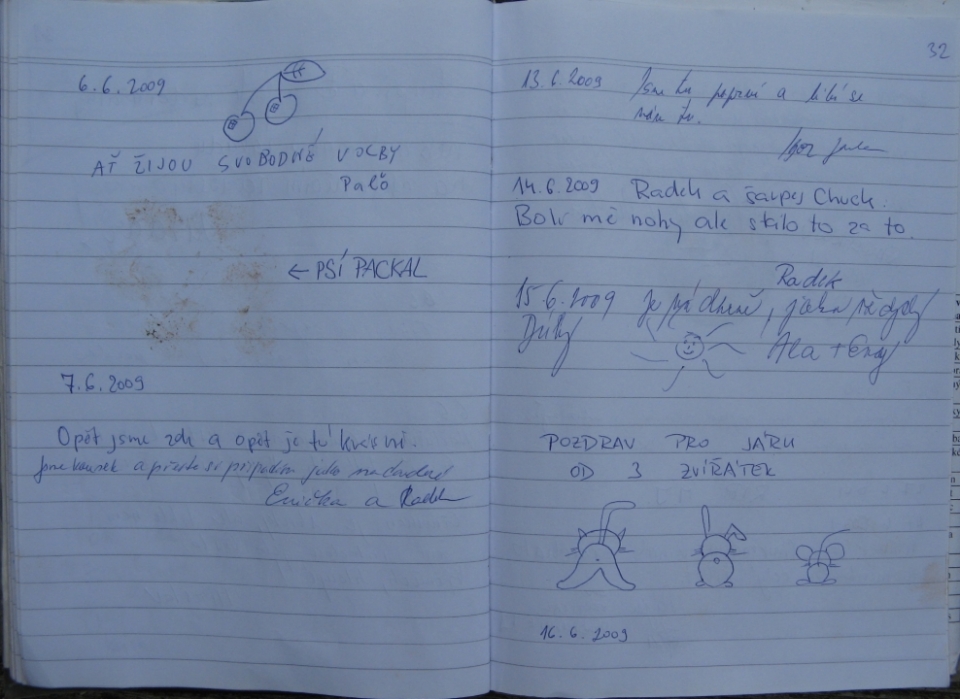 6.6.2009
AŤ ŽIJOU SVOBODNÉ VOLBY
Palo
← PSÍ PACKAL
7.6.2009
Opět jsme zde a opět je tu krásně.
jsme a přesto si jako
Enička a Radek
32
13.6.2009 Jsme tu poprvé a líbí se
nám tu.
Igor
14.6.2009 Radek a šarpej Chuck.
Bolí mě nohy ale stálo to za to.
Radek
15.6.2009 je nádherně, jako vždycky
Díky
POZDRAV PRO JÁRU
OD 3 ZVÍŘÁTEK
16.6.2009